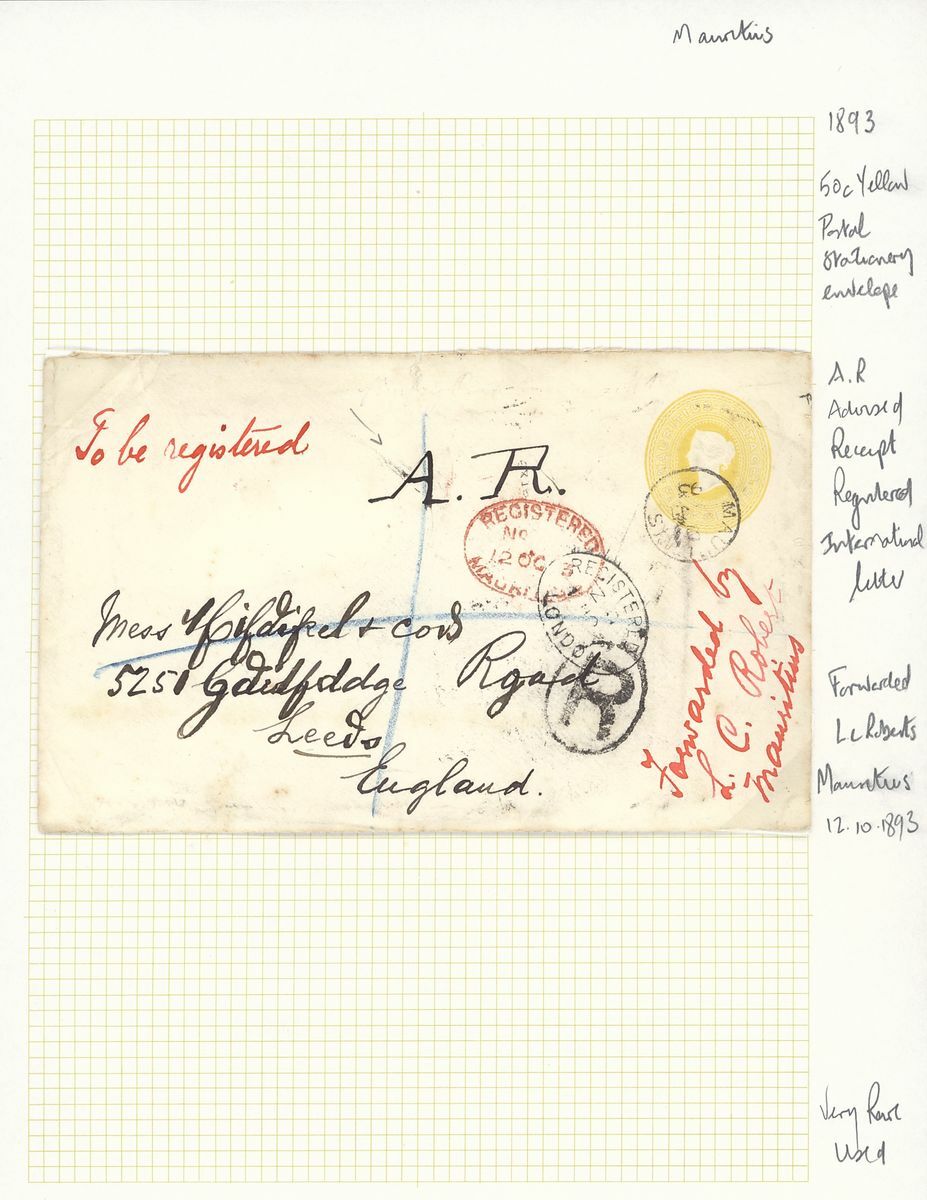 Mauritius
1893
50c Yellow
Postal
Stationery
envelope
A.R
Advised
Receipt
Registered
International
letter
Forwarded
L C Roberts
Mauritius
12.10.1893
Very Rare
Used
To be registered
A. R.
REGISTERED
No
12 OC
MAURITIUS
MAURITIUS
93
REGISTERED
LONDON
R
Mess & Co
Road
Leeds
England.
Forwarded by
L. C. Robert
Mauritius